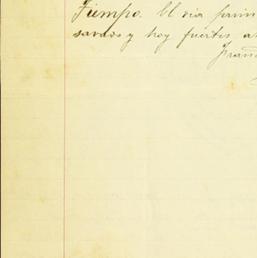 Tiempo. El dia prim
savado y hoy fuertes a
Fran